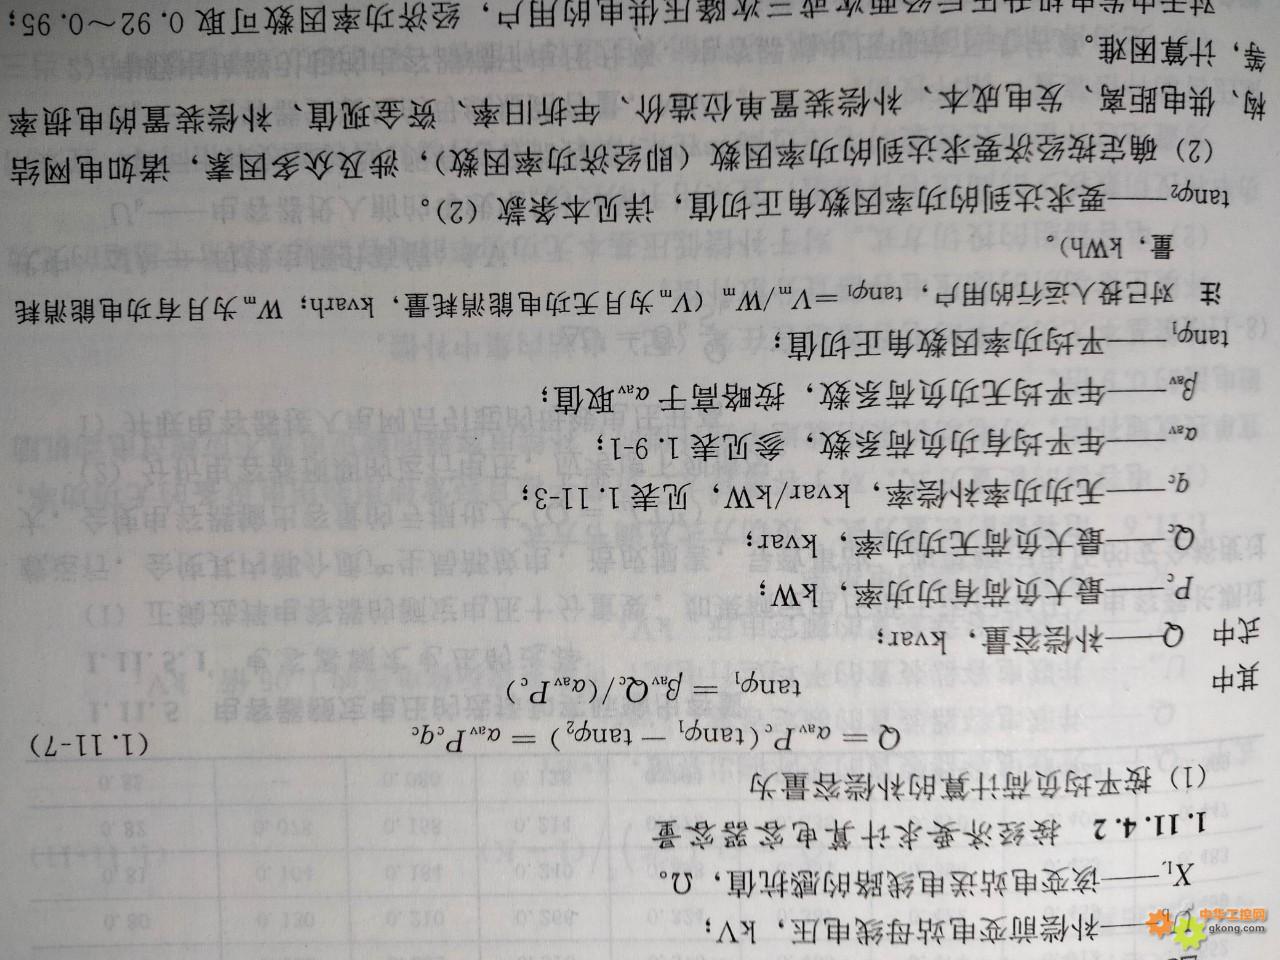 ——补偿前变电站母线电压，kV；
X_L——该变电站送电线路的感抗值，Ω。
1.11.4.2 按经济要求计算电容器容量
(1) 按平均负荷计算的补偿容量为
Q = α_av P_c (tanφ₁ − tanφ₂) = α_av P_c q_c (1.11-7)
其中 tanφ₁ = β_av Q_c/(α_av P_c)
式中 Q——补偿容量，kvar；
P_c——最大负荷有功功率，kW；
Q_c——最大负荷无功功率，kvar；
q_c——无功功率补偿率，kvar/kW，见表1.11-3；
α_av——年平均有功负荷系数，参见表1.9-1；
β_av——年平均无功负荷系数，按略高于α_av取值；
tanφ₁——平均功率因数角正切值；
注 对已投入运行的用户，tanφ₁=V_m/W_m（V_m为月无功电能消耗量，kvarh；W_m为月有功电能消耗
量，kWh）。
tanφ₂——要求达到的功率因数角正切值，详见本条款(2)。
(2) 确定按经济要求达到的功率因数（即经济功率因数），涉及众多因素，诸如电网结
构、供电距离、发电成本、补偿装置单位造价、年折旧率、资金现值、补偿装置的电损率
等，计算困难。
对于由发电机升压后经两次或三次降压供电的用户，经济功率因数可取0.92～0.95；
中华工控网
gkong.com